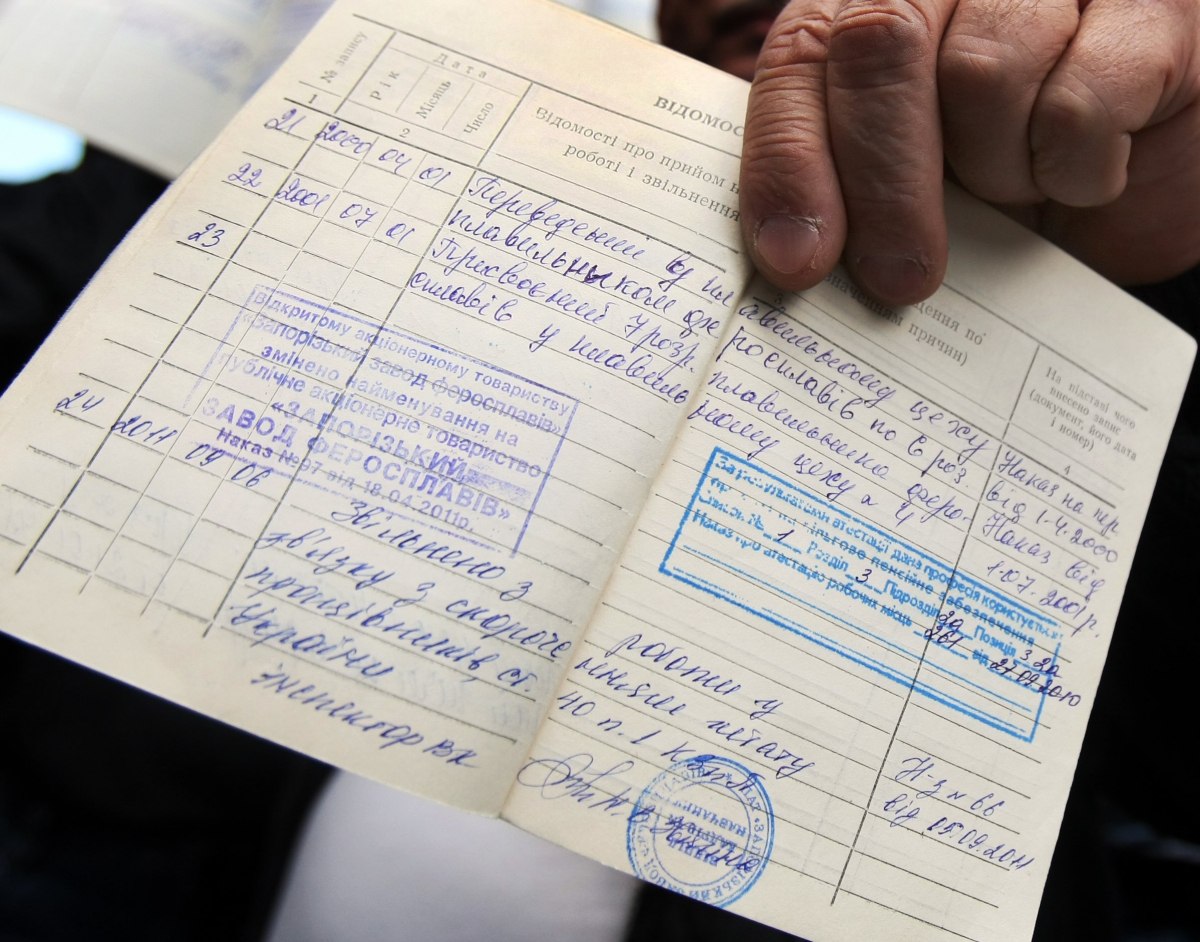 ВІДОМОС
№ запису
Дата
Рік
Місяць
Число
Відомості про прийом н
роботі і звільнення
дення по
значенням причин)
На підставі чого
внесено запис
(документ, його дата
і номер)
1
2
3
4
21 2000 04 01 Переведений у пл авильному цеху Наказ на пер
плавильником фе росплавів по 6 роз. від 1.4.2000
22 2001 07 01 Присвоєний 7 розр. плавильника феро- Наказ від
сплавів у плавиль ному цеху № 4 1.07.2001р.
23
Відкритому акціонерному товариству
«Запорізький завод феросплавів»
змінено найменування на
публічне акціонерне товариство
«ЗАПОРІЗЬКИЙ
ЗАВОД ФЕРОСПЛАВІВ»
Наказ №97 від 18.04.2011р.
За результатами атестації дана професія користується
правом на пільгове пенсійне забезпечення
Список № 1 Розділ 3 Підрозділ Позиція
Наказ про атестацію робочих місць 267 від 27.09.2010
24 2011 09 06 Звільнено з роботи у
звязку з скороче ненням штату
працівників, ст. 40 п.1 КЗпП Н-з №66
України від 05.09.2011
Інспектор ВК